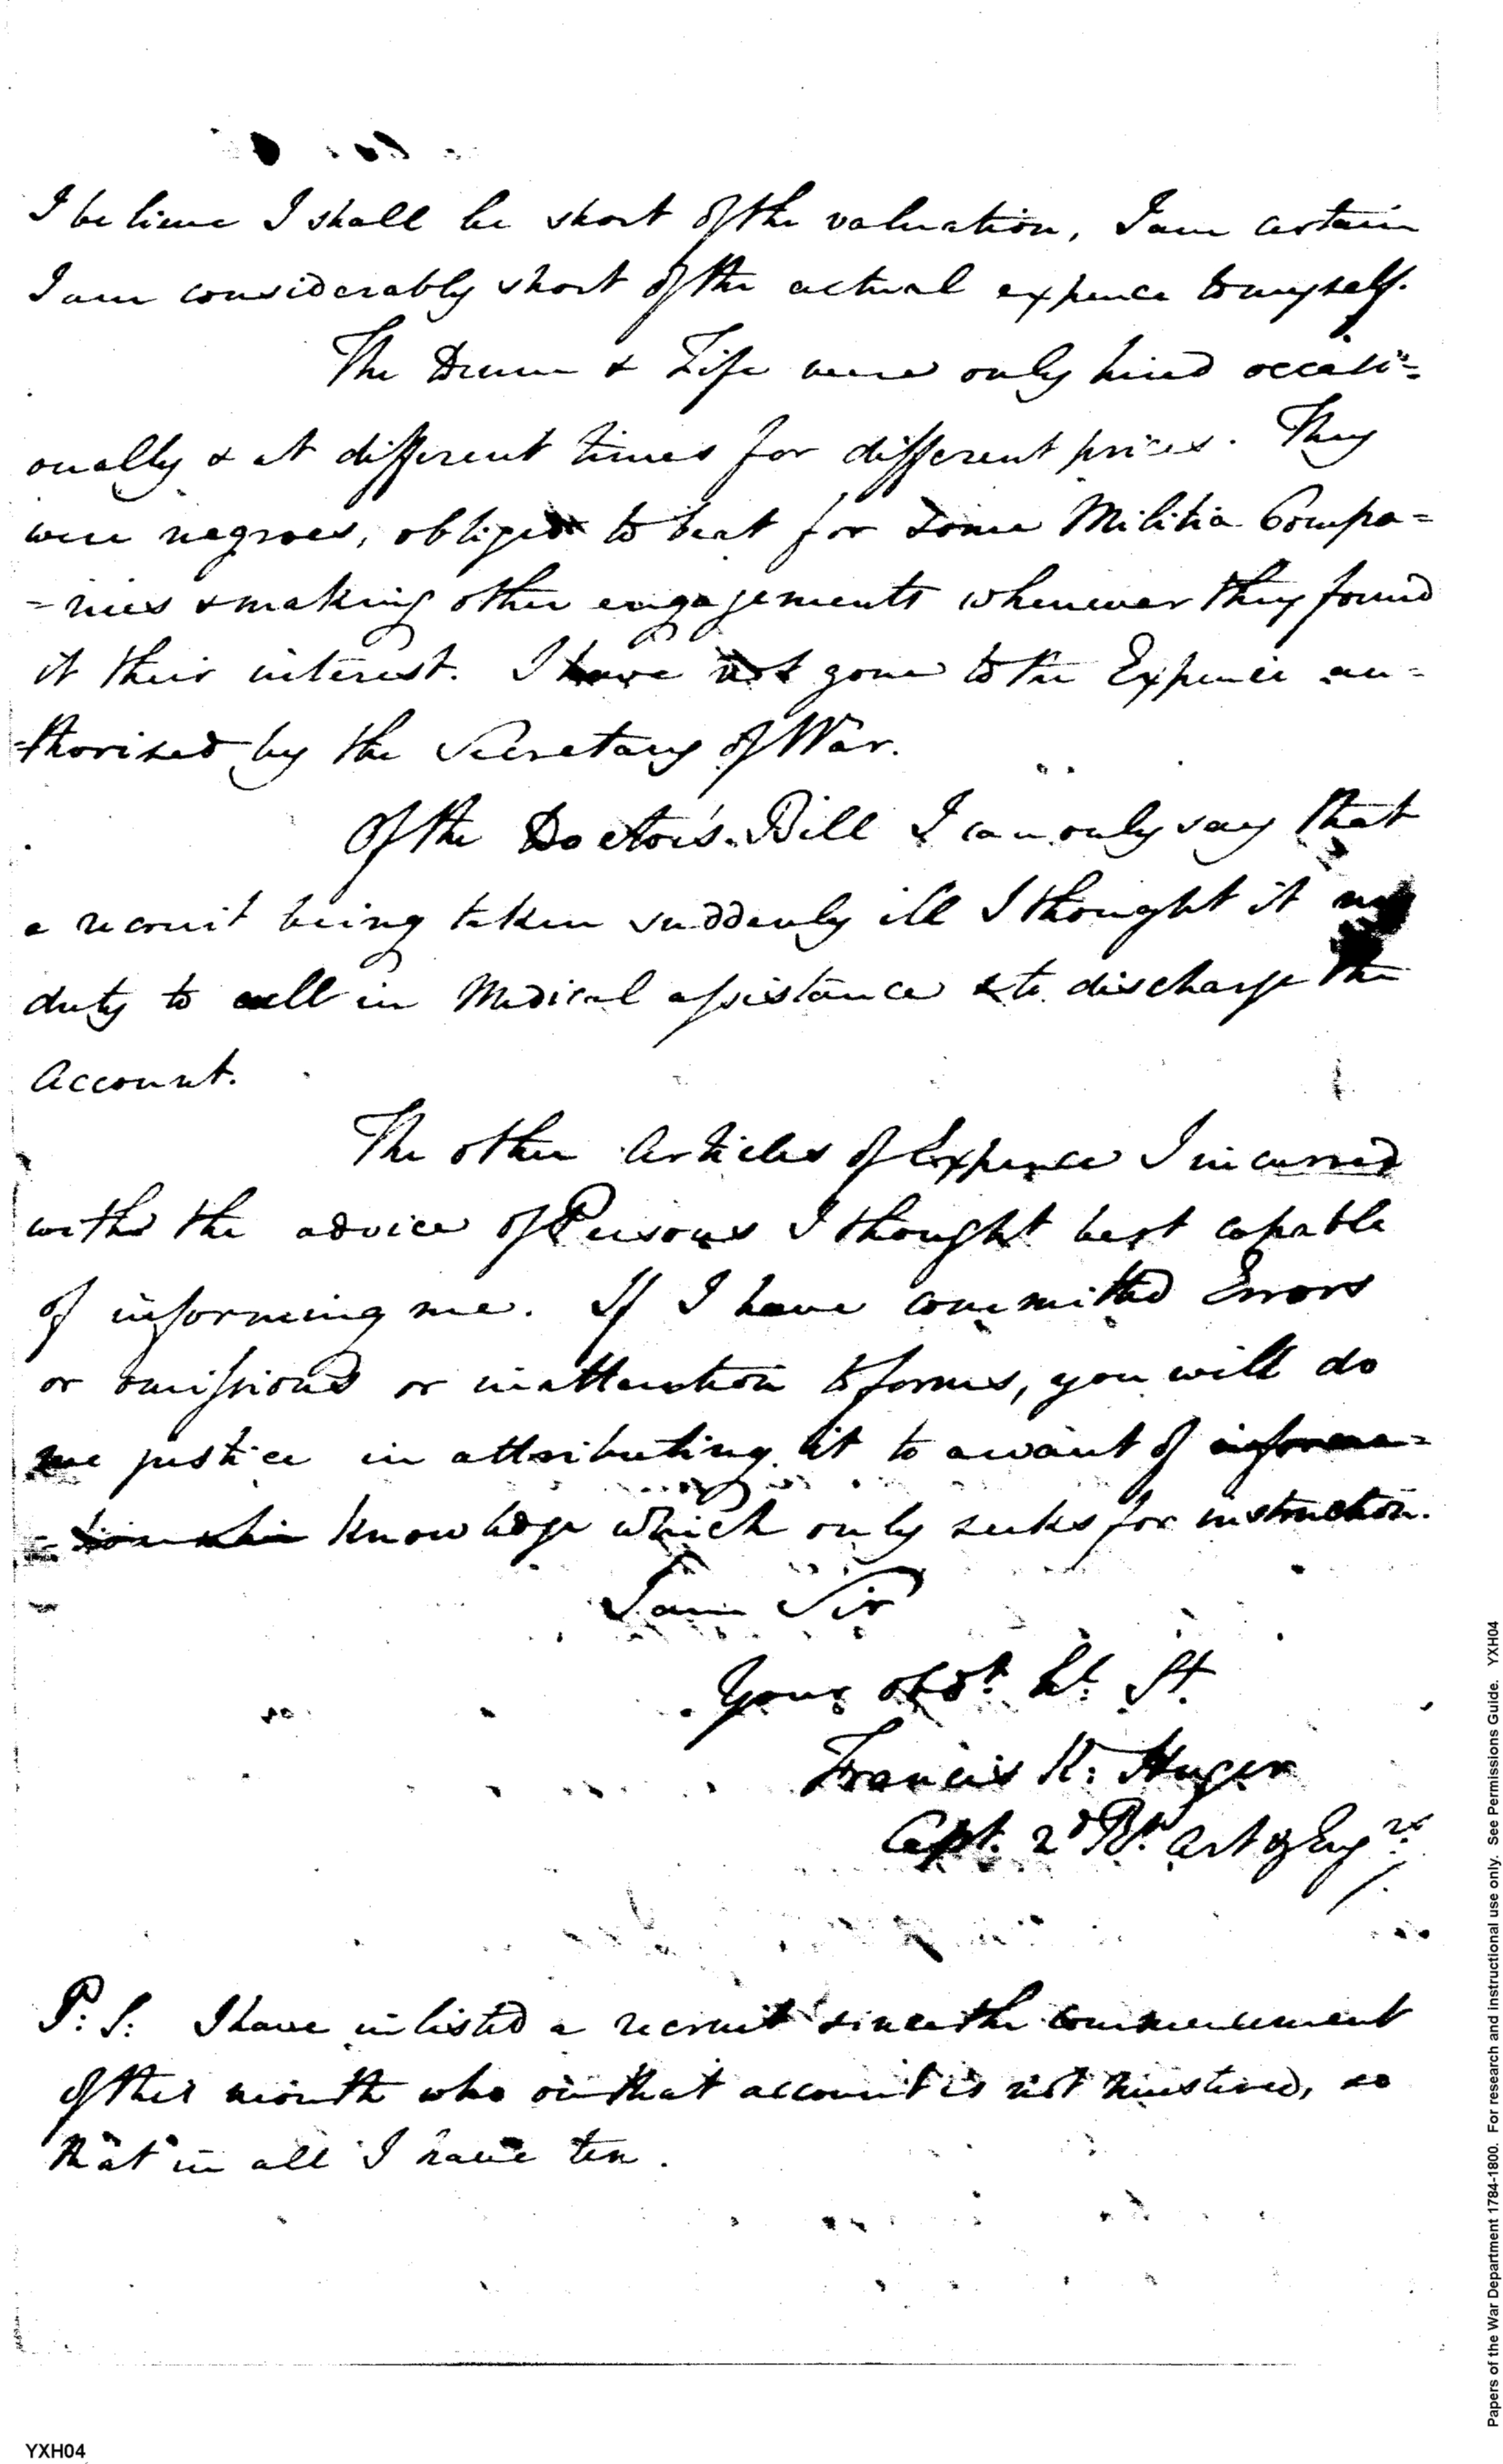 I believe I shall be short of the valuation, I am certain
I am considerably short of the actual expence to myself.
The Drum & Fife were only hired occasi=
onally & at different times for different prices. They
were negroes, obliged to beat for some Militia Compa=
=nies & making other engagements whenever they found
it their interest. I have not gone to the Expence au=
=thorised by the Secretary of War.
Of the Doctor's Bill I can only say that
a recruit being taken suddenly ill I thought it my
duty to call in Medical assistance & to discharge the
Account.
The other Articles of Expence I incurred
with the advice of Persons I thought best capable
of informing me. If I have committed Errors
or omissions or inattention to forms, you will do
me justice in attributing it to a want of informa=
knowledge which only seeks for instruction.
I am Sir
Your obdt. hl. St.
Francis K. Huger
Capt. 2d Rt. Art & Engrs.
P.S. I have inlisted a recruit since the commencement
of this month who on that account is not mustered, so
that in all I have ten.
YXH04
Papers of the War Department 1784-1800. For research and instructional use only. See Permissions Guide. YXH04